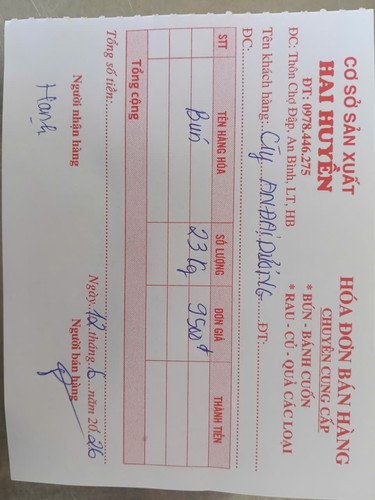 CƠ SỞ SẢN XUẤT
HẢI HUYỀN
ĐT: 0978.446.275
ĐC: Thôn Chợ Đập, An Bình, LT, HB
HÓA ĐƠN BÁN HÀNG
CHUYÊN CUNG CẤP
* BÚN - BÁNH CUỐN
* RAU - CỦ - QUẢ CÁC LOẠI
Tên khách hàng: Cty ANĐẠI DƯƠNG ĐT:
ĐC:
STT TÊN HÀNG HÓA SỐ LƯỢNG ĐƠN GIÁ THÀNH TIỀN
Bún 23 kg 9500đ
Tổng cộng
Tổng số tiền:
Ngày 12 tháng 6 năm 2026
Người nhận hàng Người bán hàng
Hạnh